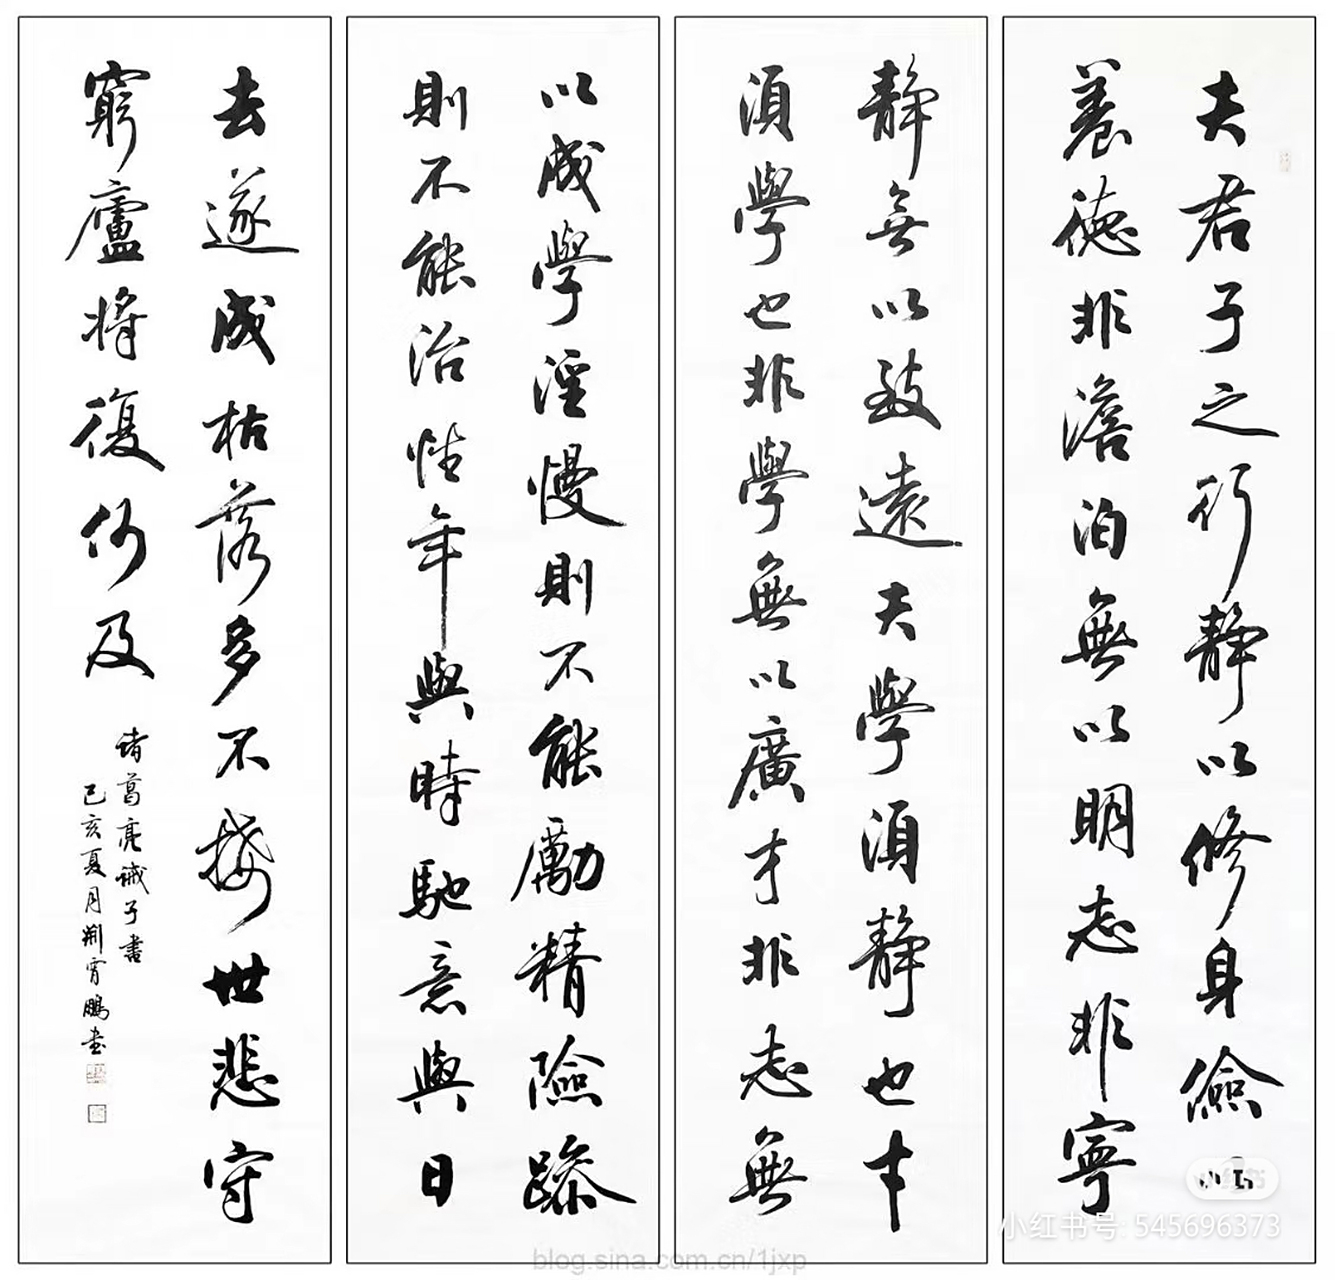 夫君子之行静以修身儉以
養德非澹泊無以明志非寧
静無以致遠夫學湏静也才
湏學也非學無以廣才非志無
以成學淫慢則不能勵精險躁
則不能治性年與時馳意與日
去遂成枯落多不接世悲守
窮廬將復何及
诸葛亮诫子書
己亥夏月荆霄鵬书
小红书
小红书号: 545696373
blog.sina.com.cn/1jxp